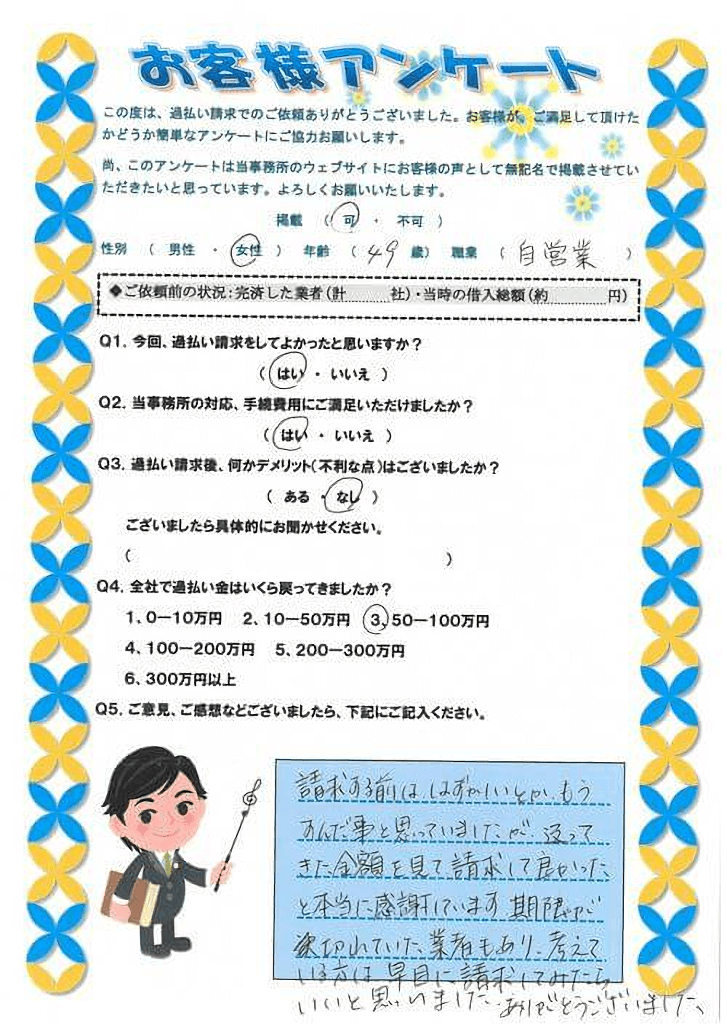 お客様アンケート
この度は、過払い請求でのご依頼ありがとうございました。お客様が、ご満足して頂けた
かどうか簡単なアンケートにご協力お願いします。
尚、このアンケートは当事務所のウェブサイトにお客様の声として無記名で掲載させてい
ただきたいと思っています。よろしくお願いいたします。
掲載 ( 可 ・ 不可 )
性別 ( 男性 ・ 女性 ) 年齢 ( 49 歳) 職業 ( 自営業 )
◆ご依頼前の状況:完済した業者(計......社)・当時の借入総額(約......円)
Q1. 今回、過払い請求をしてよかったと思いますか?
( はい ・ いいえ )
Q2. 当事務所の対応、手続費用にご満足いただけましたか?
( はい ・ いいえ )
Q3. 過払い請求後、何かデメリット(不利な点)はございましたか?
( ある ・ なし )
ございましたら具体的にお聞かせください。
( )
Q4. 全社で過払い金はいくら戻ってきましたか?
1、0―10万円 2、10―50万円 3、50―100万円
4、100―200万円 5、200―300万円
6、300万円以上
Q5. ご意見、ご感想などございましたら、下記にご記入ください。
請求する前は、はずかしいとか、もう
すんだ事と思っていましたが、返って
きた金額を見て請求して良かった、
と本当に感謝しています 期限が
切れていた業者もあり、考えて
いる方は早目に請求してみたら
いいと思いました。ありがとうございました、